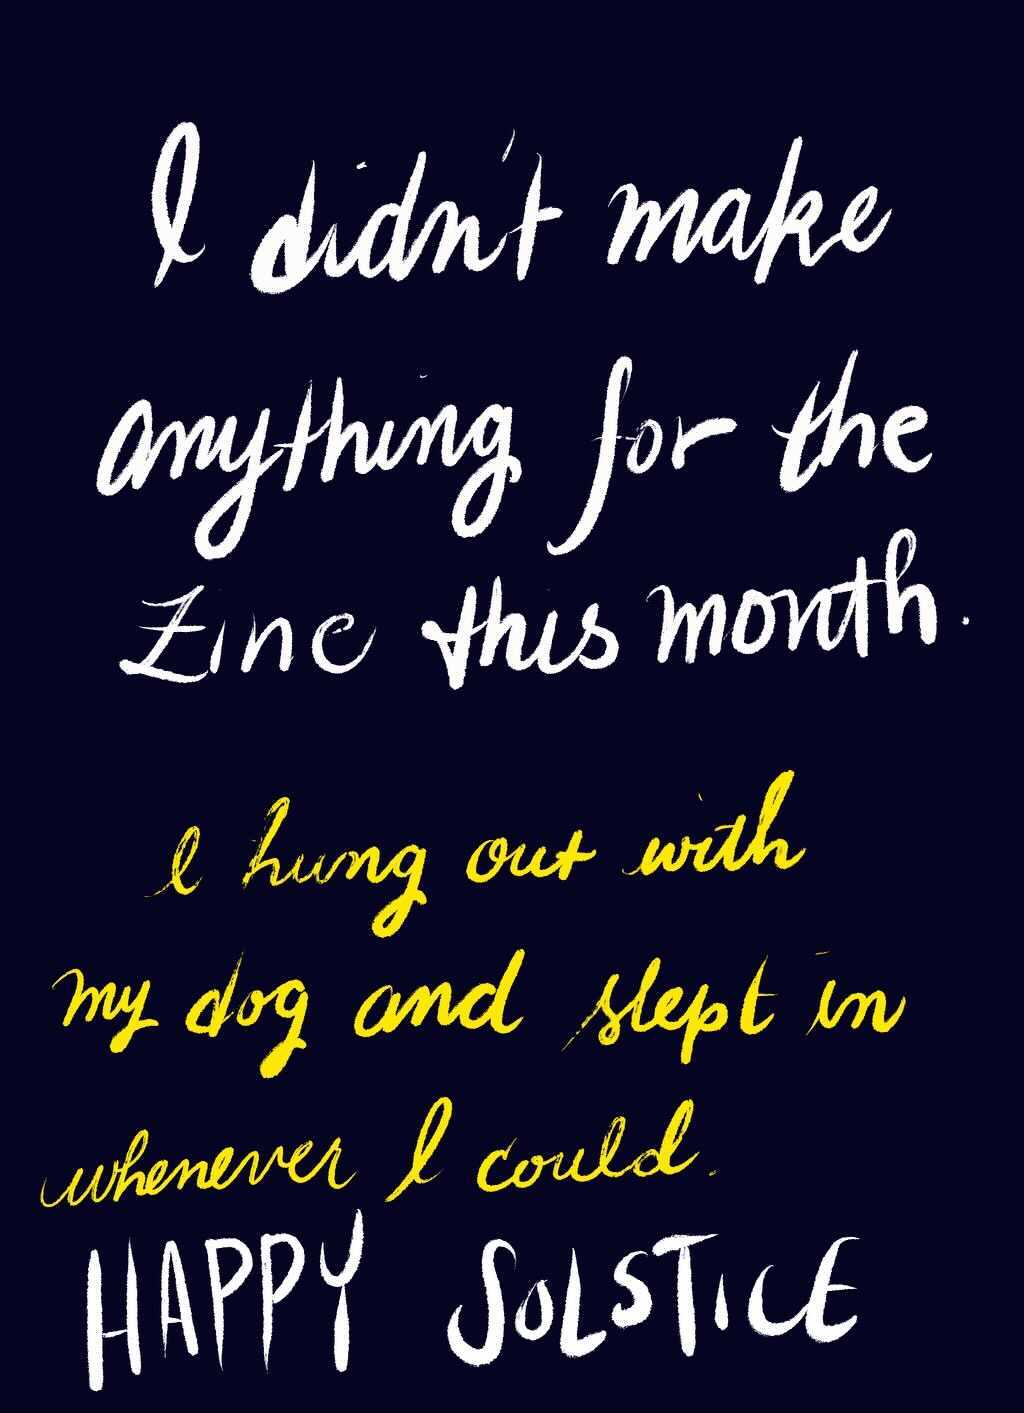 I didn't make
anything for the
Zine this month.
I hung out with
my dog and slept in
whenever I could.
HAPPY SOLSTICE